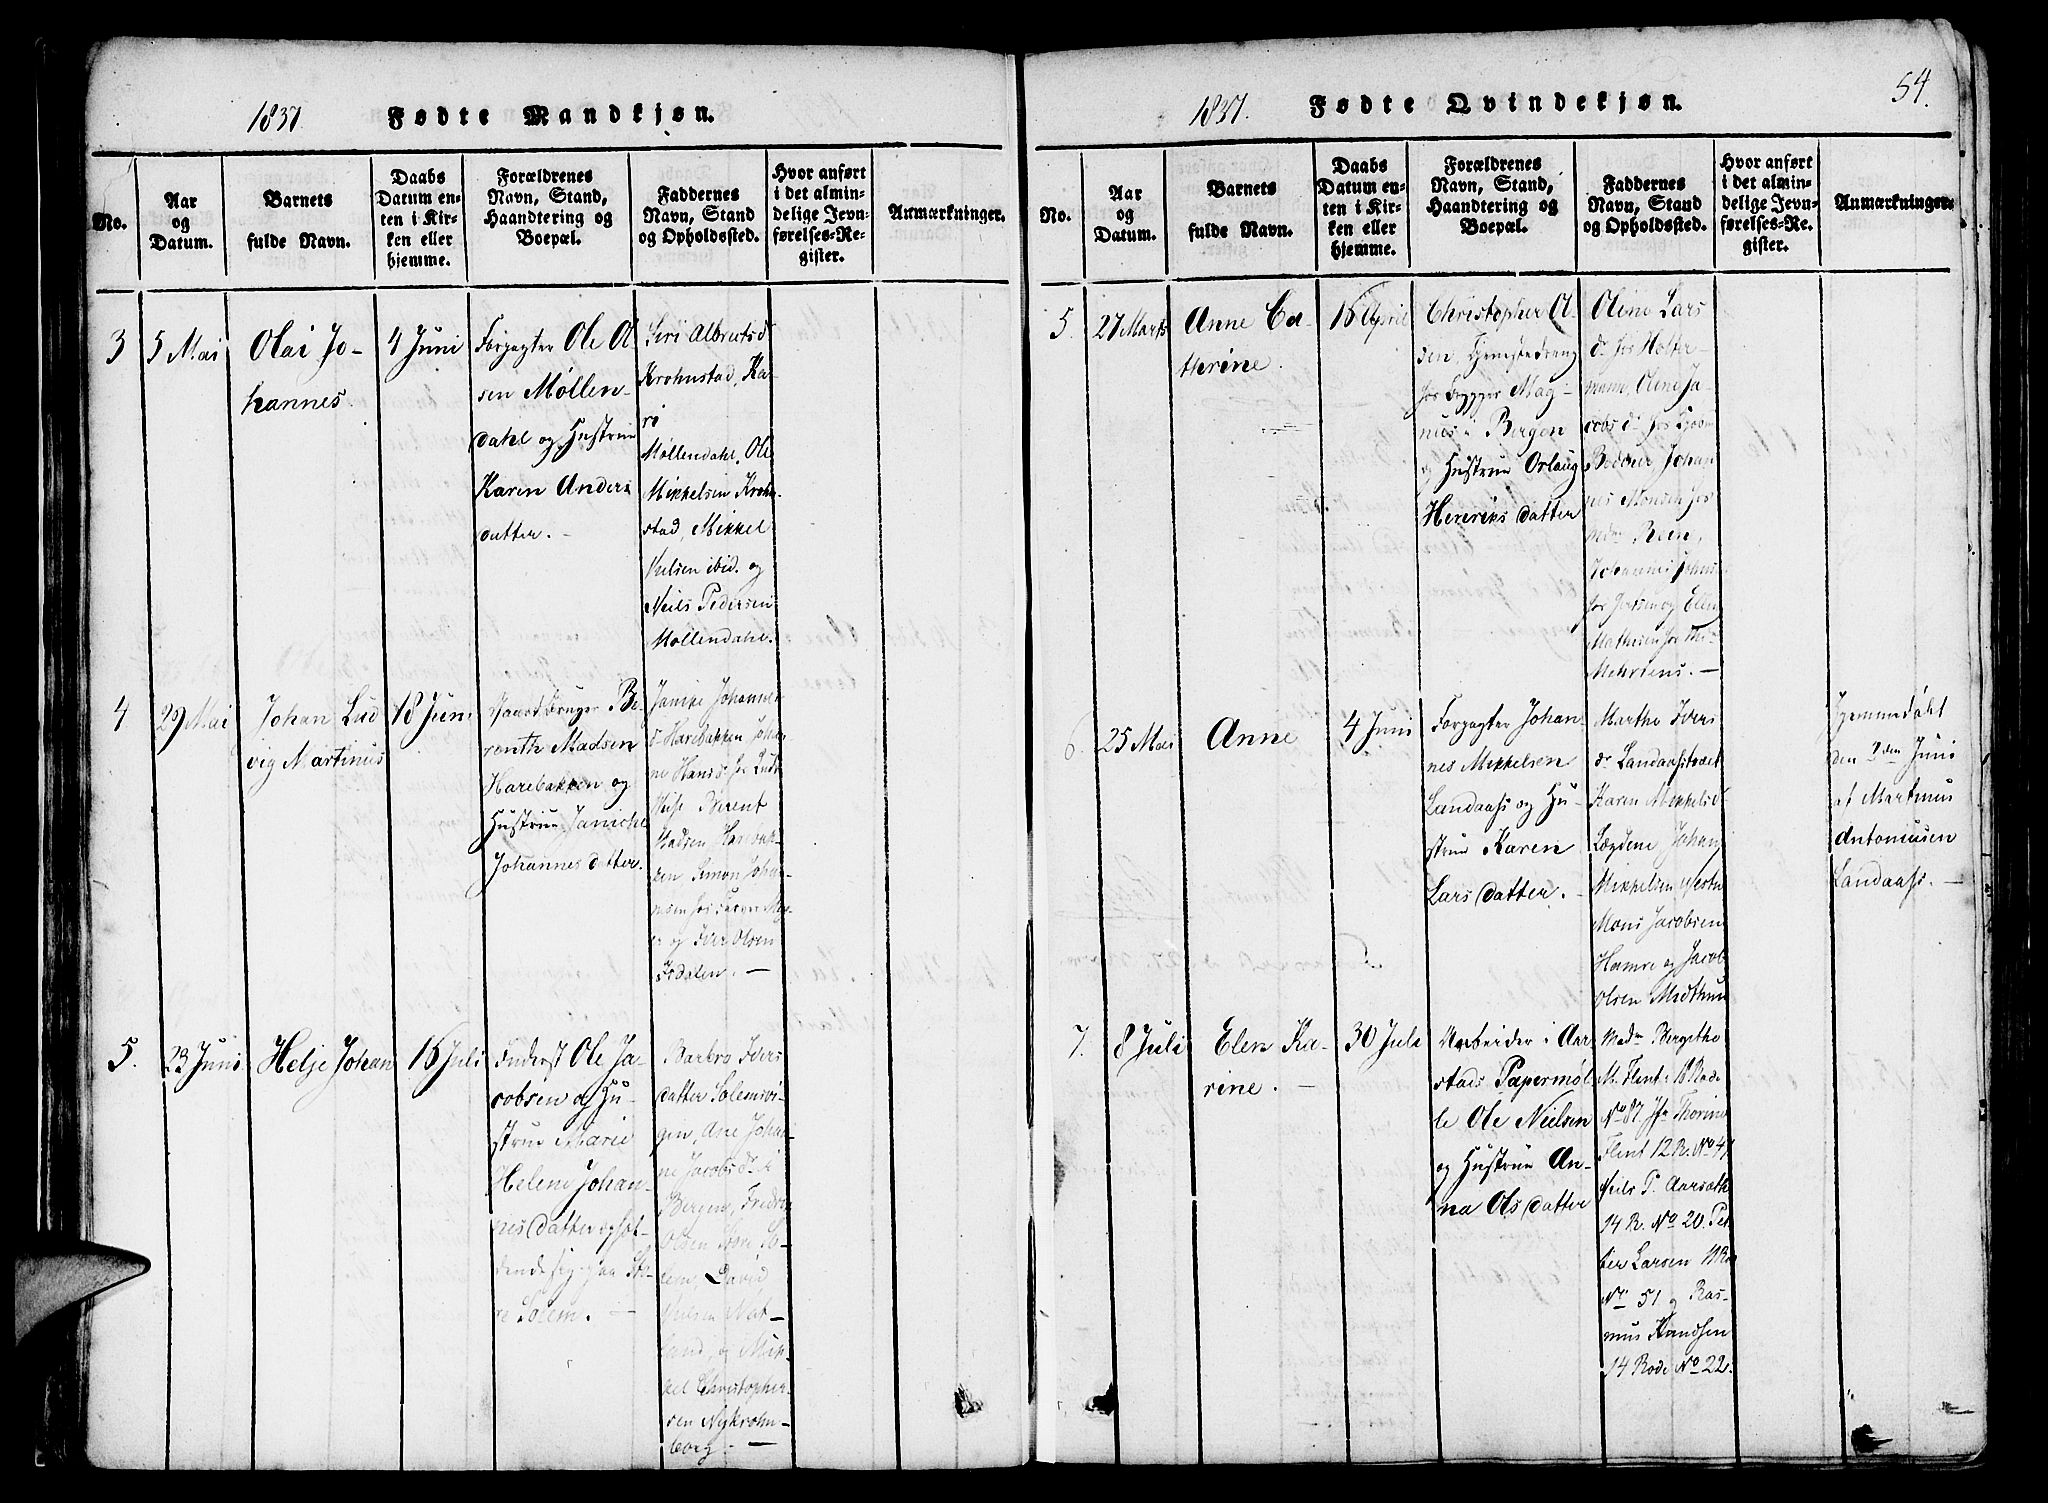 1837. Fødte Mandkjøn.
No.
Aar
og
Datum.
Barnets
fulde Navn.
Daabs
Datum en-
ten i Kir-
ken eller
hjemme.
Forældrenes
Navn, Stand,
Haandtering og
Boepæl.
Faddernes
Navn, Stand
og Opholdssted.
Hvor anført
i det almin-
delige Jevn-
førelses-Re-
gister.
Anmærkninger.
3
5 Mai
Olai Jo-
hannes.
4 Juni
Forpagter Ole Ol
sen Møllen-
dahl og Hustrue
Karen Anders
datter. -
Siri Albrictsd
Krohnstad, Ka-
ri
Møllendahl, Ole
Mikkelsen Krohn-
stad, Mikkel
Nielsen ibid. og
Neils Pedersen
Møllendahl.
4
29 Mai
Johan Lud
vig Martinus
18 Juni
Be-
renth Madsen
Harebakken og
Hustrue Janiche
Johannesdatter.
Janike Johannes
d. Harebakken
ne Hans
Berent
Madsen Harebak-
ken Simon Johan-
nesen hos
og Iver Olsen
Isdalen. -
5.
23 Juni
Helje Johan
16 Juli
Inderst Ole Ja-
cobsen og Hu-
strue Marie
Helene Johan-
nesdatter ophol-
dende sig paa St-
re Solem. -
Barbro Ivers
datter Solemsvi-
gen, Ane Johan-
ne Jacobsdr. i
Bergen, Fredrig
Olsen Store So-
lem, David
Nielsen Nat-
land, og Mik-
kel Christopher-
sen Nykrohn-
borg. -
1837. Fødte Qvindekjøn.
54.
No.
Aar
og
Datum.
Barnets
fulde Navn.
Daabs
Datum en-
ten i Kir-
ken eller
hjemme.
Forældrenes
Navn, Stand,
Haandtering og
Boepæl.
Faddernes
Navn, Stand
og Opholdssted.
Hvor anført
i det almin-
delige Jevn-
førelses-Re-
gister.
Anmærkninger.
5.
27 Marts
Anne Ca-
thrine.
16 April
Christopher Ol-
sen, Tjenestedreng
hos Bygger Mag-
nus i Bergen
og Hustrue Orlaug
Henriks datter
Oline Lars
dr hos Holter-
mann, Oline Ja-
cobs dr hos
Bødker, Johan
nes Monsen hos
Madm Rein,
Johannes Johans
hos Jessen og Ellen
Mathisen hos
Mehrtens. -
6.
25 Mai
Anne
4 Juni
Forpagter Johan-
nes Mikkelsen
Landaas og Hu-
strue Karen
Lars datter. -
Martha Ivers
dr Landaastræet
Karen Mikkelsd
Lægdene Johan
Mikkelsen
Mons Jacobsen
Hamre og Jacob
Olsen Midthun
Hjemmedøbt
den 1den Juni
af Martinus
Antoniusen
Landaas. -
7.
8 Juli
Elen Ka-
rine. -
30 Juli
Arbeider i Aar
stads Papermøl-
le Ole Nielsen
og Hustrue An-
na Ols datter
Madm Bergithe
M. Flent i 18 Rode
No 87 Jfr Thorine
Flent 12 R. No 47
Neils P. Aarsæth
14 R. No 20. Pet
ter Larsen 11 Ro
No 51 og Ras-
mus Knudsen
14 Rode No 22.